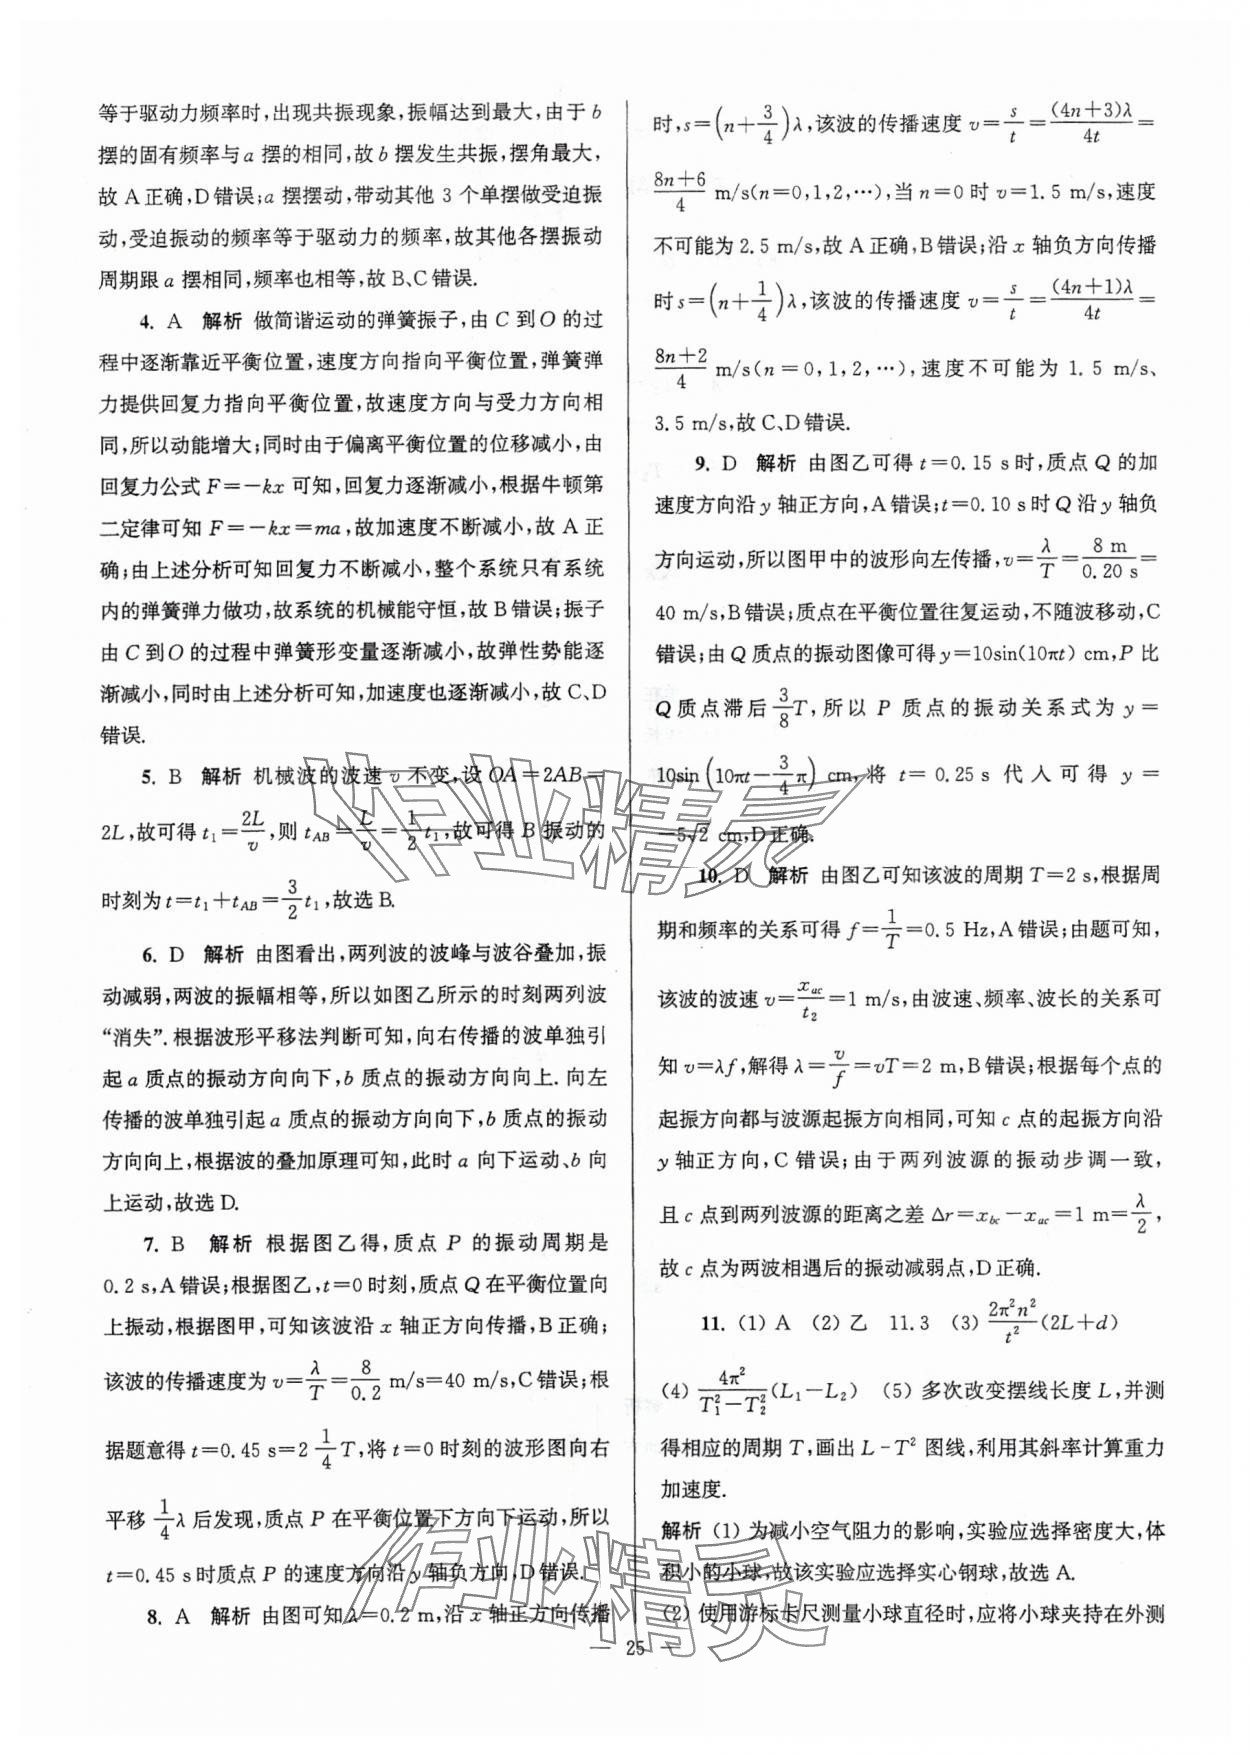 等于驱动力频率时,出现共振现象,振幅达到最大,由于 b
摆的固有频率与 a 摆的相同,故 b 摆发生共振,摆角最大,
故 A 正确,D 错误;a 摆摆动,带动其他 3 个单摆做受迫振
动,受迫振动的频率等于驱动力的频率,故其他各摆振动
周期跟 a 摆相同,频率也相等,故 B、C 错误.
4. A 解析 做简谐运动的弹簧振子,由 C 到 O 的过
程中逐渐靠近平衡位置,速度方向指向平衡位置,弹簧弹
力提供回复力指向平衡位置,故速度方向与受力方向相
同,所以动能增大;同时由于偏离平衡位置的位移减小,由
回复力公式 F=-kx 可知,回复力逐渐减小,根据牛顿第
二定律可知 F=-kx=ma,故加速度不断减小,故 A 正
确;由上述分析可知回复力不断减小,整个系统只有系统
内的弹簧弹力做功,故系统的机械能守恒,故 B 错误;振子
由 C 到 O 的过程中弹簧形变量逐渐减小,故弹性势能逐
渐减小,同时由上述分析可知,加速度也逐渐减小,故 C、D
错误.
5. B 解析 机械波的波速 v 不变,设 OA=2AB=
2L,故可得 t₁=2L/v,则 t_AB=L/v=1/2 t₁,故可得 B 振动的
时刻为 t=t₁+t_AB=3/2 t₁,故选 B.
6. D 解析 由图看出,两列波的波峰与波谷叠加,振
动减弱,两波的振幅相等,所以如图乙所示的时刻两列波
“消失”.根据波形平移法判断可知,向右传播的波单独引
起 a 质点的振动方向向下,b 质点的振动方向向上.向左
传播的波单独引起 a 质点的振动方向向下,b 质点的振动
方向向上,根据波的叠加原理可知,此时 a 向下运动、b 向
上运动,故选 D.
7. B 解析 根据图乙得,质点 P 的振动周期是
0.2 s,A 错误;根据图乙,t=0 时刻,质点 Q 在平衡位置向
上振动,根据图甲,可知该波沿 x 轴正方向传播,B 正确;
该波的传播速度为 v=λ/T=8/0.2 m/s=40 m/s,C 错误;根
据题意得 t=0.45 s=2 1/4 T,将 t=0 时刻的波形图向右
平移 1/4 λ 后发现,质点 P 在平衡位置下方向下运动,所以
t=0.45 s 时质点 P 的速度方向沿 y 轴负方向,D 错误.
8. A 解析 由图可知 λ=0.2 m,沿 x 轴正方向传播
时,s=(n+3/4)λ,该波的传播速度 v=s/t=(4n+3)λ/4t=
8n+6/4 m/s(n=0,1,2,…),当 n=0 时 v=1.5 m/s,速度
不可能为 2.5 m/s,故 A 正确,B 错误;沿 x 轴负方向传播
时 s=(n+1/4)λ,该波的传播速度 v=s/t=(4n+1)λ/4t=
8n+2/4 m/s(n=0,1,2,…),速度不可能为 1.5 m/s、
3.5 m/s,故 C、D 错误.
9. D 解析 由图乙可得 t=0.15 s 时,质点 Q 的加
速度方向沿 y 轴正方向,A 错误;t=0.10 s 时 Q 沿 y 轴负
方向运动,所以图甲中的波形向左传播,v=λ/T=8 m/0.20 s=
40 m/s,B 错误;质点在平衡位置往复运动,不随波移动,C
错误;由 Q 质点的振动图像可得 y=10sin(10πt) cm,P 比
Q 质点滞后 3/8 T,所以 P 质点的振动关系式为 y=
10sin(10πt-3/4 π) cm,将 t=0.25 s 代人可得 y=
-5√2 cm,D 正确.
10. D 解析 由图乙可知该波的周期 T=2 s,根据周
期和频率的关系可得 f=1/T=0.5 Hz,A 错误;由题可知,
该波的波速 v=x_ac/t₂=1 m/s,由波速、频率、波长的关系可
知 v=λf,解得 λ=v/f=vT=2 m,B 错误;根据每个点的
起振方向都与波源起振方向相同,可知 c 点的起振方向沿
y 轴正方向,C 错误;由于两列波源的振动步调一致,
且 c 点到两列波源的距离之差 Δr=x_bc-x_ac=1 m=λ/2,
故 c 点为两波相遇后的振动减弱点,D 正确.
11. (1) A (2) 乙 11.3 (3) 2π²n²/t²(2L+d)
(4) 4π²/(T₁²-T₂²)(L₁-L₂) (5) 多次改变摆线长度 L,并测
得相应的周期 T,画出 L-T² 图线,利用其斜率计算重力
加速度.
解析 (1) 为减小空气阻力的影响,实验应选择密度大,体
积小的小球,故该实验应选择实心钢球,故选 A.
(2) 使用游标卡尺测量小球直径时,应将小球夹持在外测
— 25 —
作业精灵
作业精灵